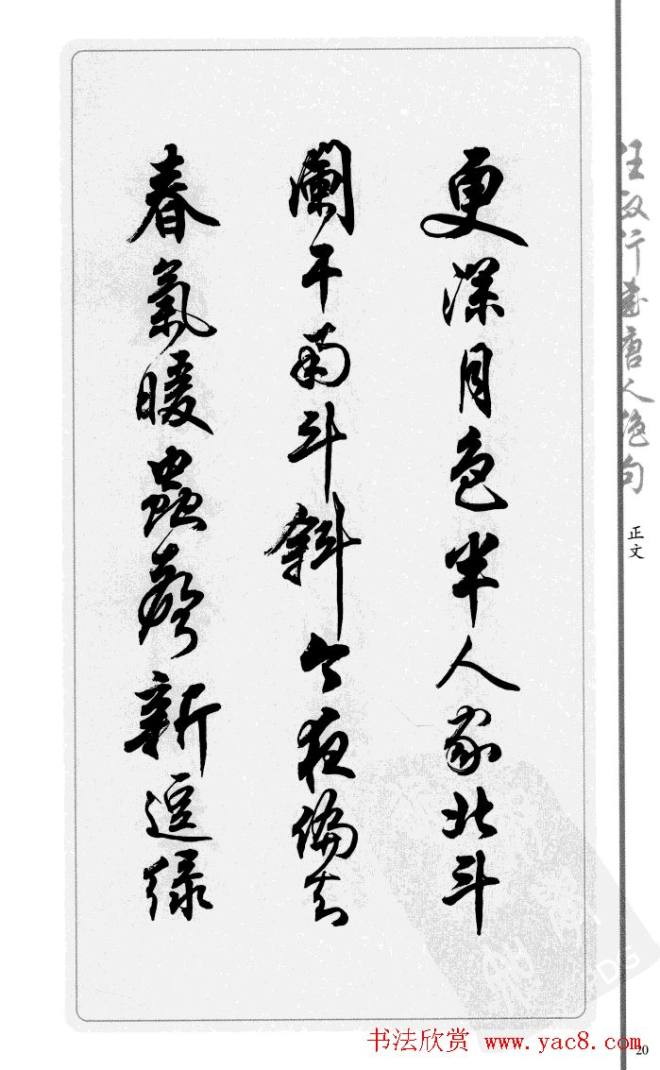 更深月色半人家北斗
闌干南斗斜今夜偏知
春氣暖蟲聲新透緑
任政行書唐人絕句
正文
书法欣赏 www.yac8.com
20